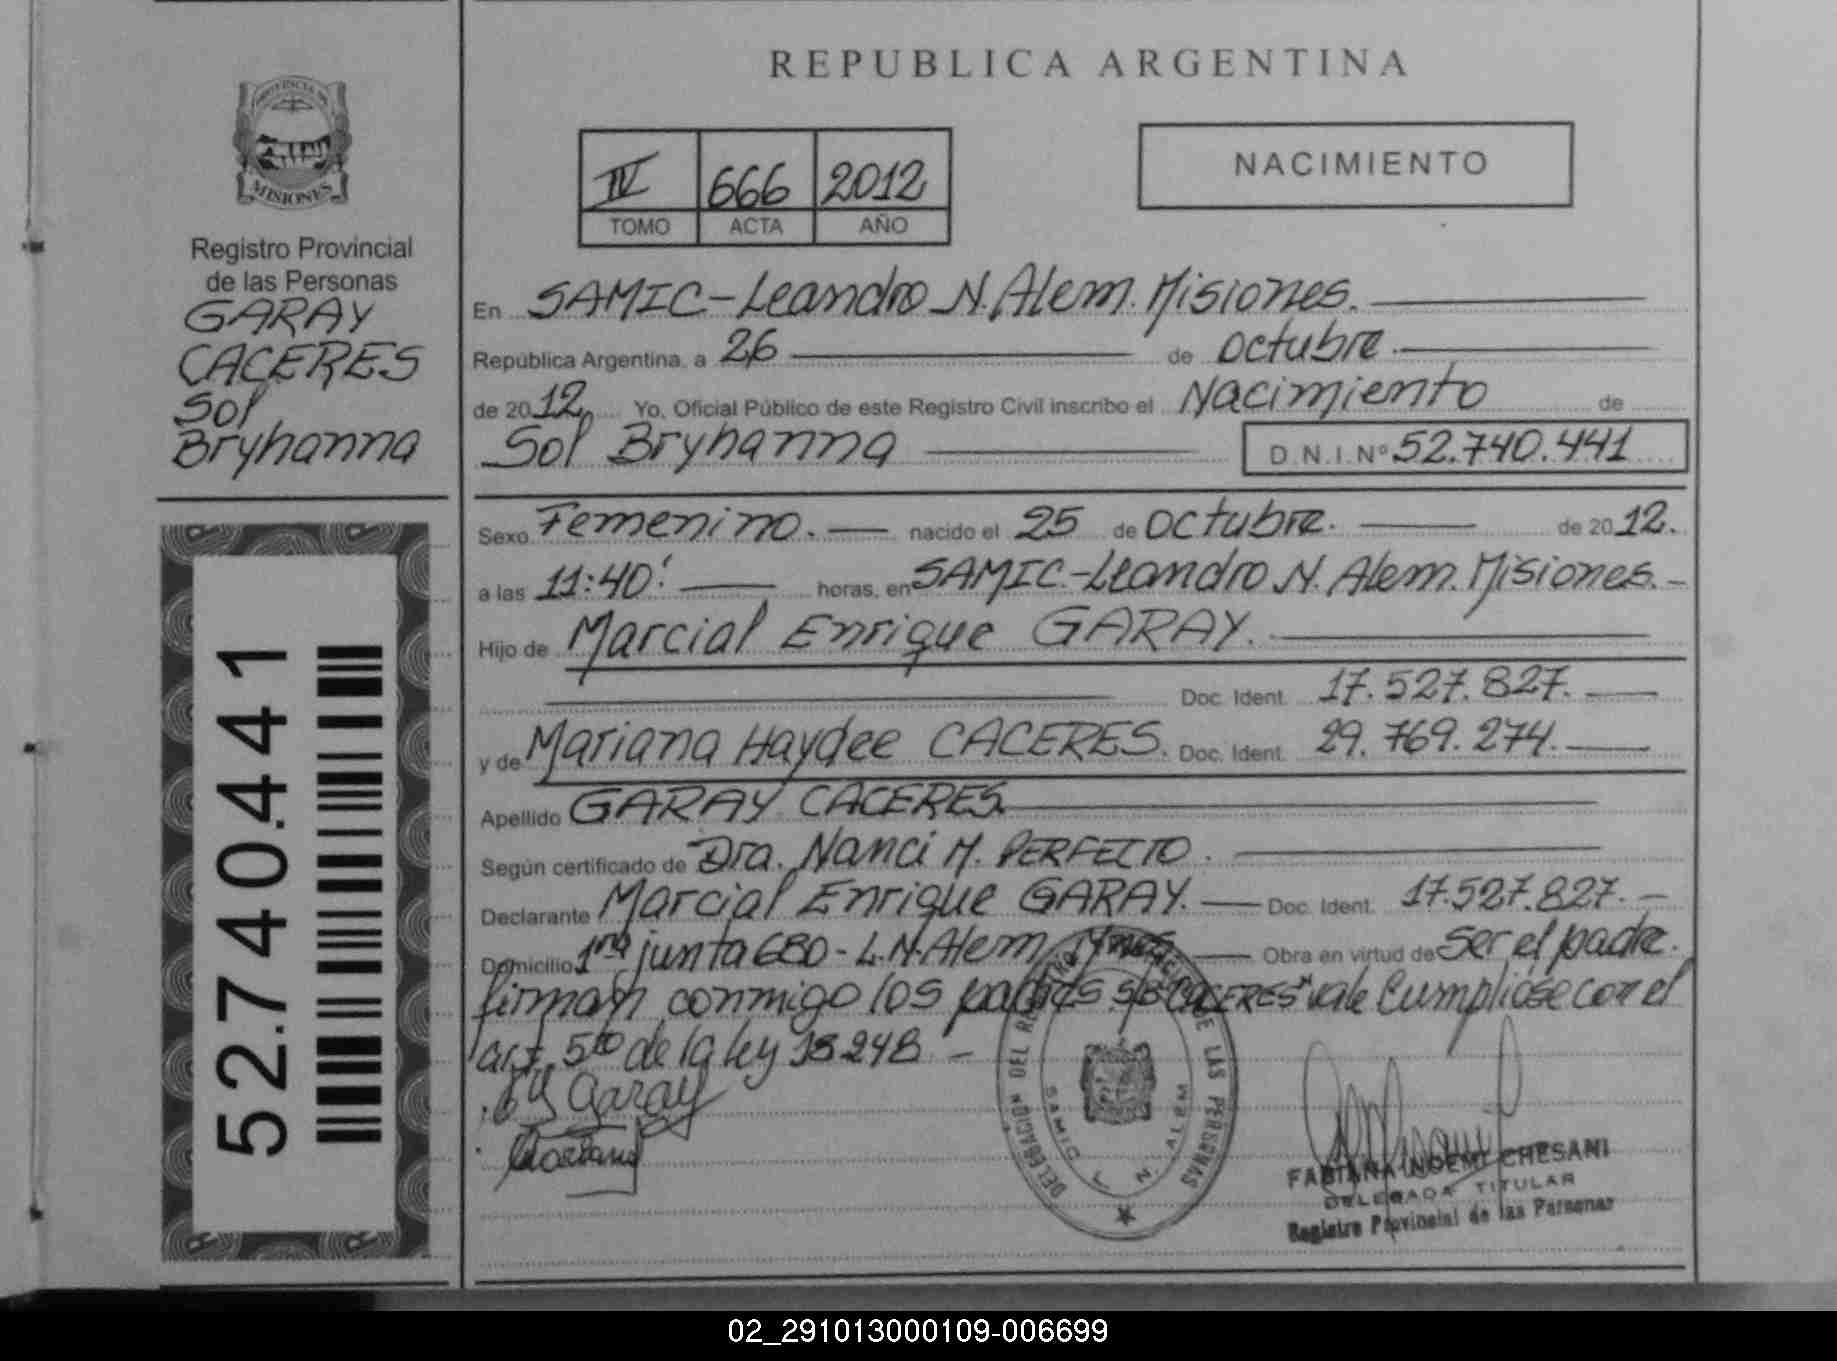 REPUBLICA ARGENTINA
PROVINCIA DE
MISIONES
Registro Provincial
de las Personas
GARAY
CACERES
Sol
Bryhanna
52.740.441
IV 666 2012
TOMO ACTA AÑO
NACIMIENTO
En SAMIC-Leandro N. Alem. Misiones.
República Argentina, a 26 de octubre
de 2012 Yo, Oficial Público de este Registro Civil inscribo el Nacimiento de
Sol Bryhanna D.N.I.Nº 52.740.441
Sexo Femenino. nacido el 25 de octubre. de 2012.
a las 11:40' horas, en SAMIC.-Leandro N. Alem. Misiones.-
Hijo de Marcial Enrique GARAY.
Doc. Ident. 17.527.827.
y de Mariana Haydee CACERES. Doc. Ident. 29.769.274.
Apellido GARAY CACERES.
Según certificado de Dra. Nanci M. PERFECTO.
Declarante Marcial Enrique GARAY. Doc. Ident. 17.527.827.-
Domicilio 1ra junta 680 - L.N. Alem Obra en virtud de ser el padre.
firman conmigo los padres S/B "CACERES" vale Cumpliose con el
art. 5to de la ley 18248 -
Garay
DELEGACION DEL REGISTRO DE LAS PERSONAS
SAMIC L. N. ALEM
FABIANA NOEMI CHESANI
DELEGADA TITULAR
Registro Provincial de las Personas
02_291013000109-006699